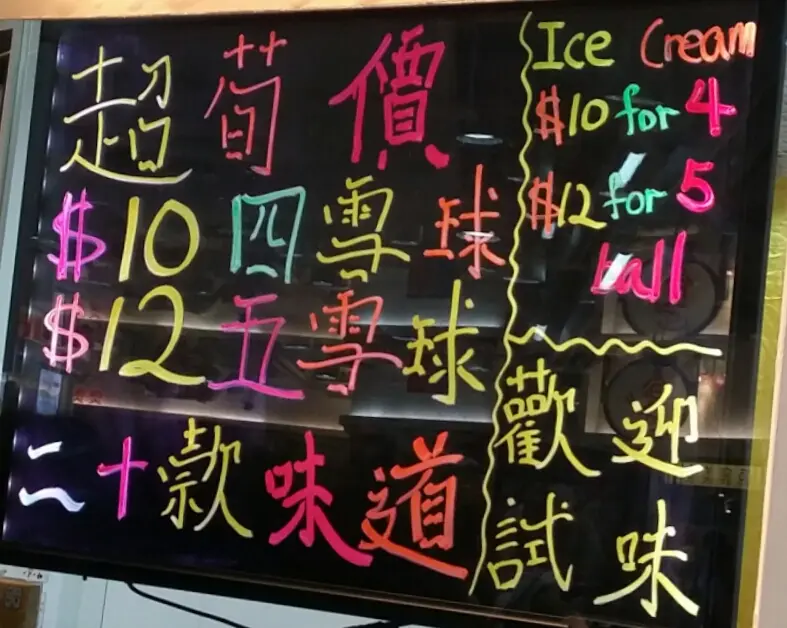 超荀價
$10四雪球
$12五雪球
二十款味道
Ice Cream
$10 for 4
$12 for 5
ball
歡迎
試味